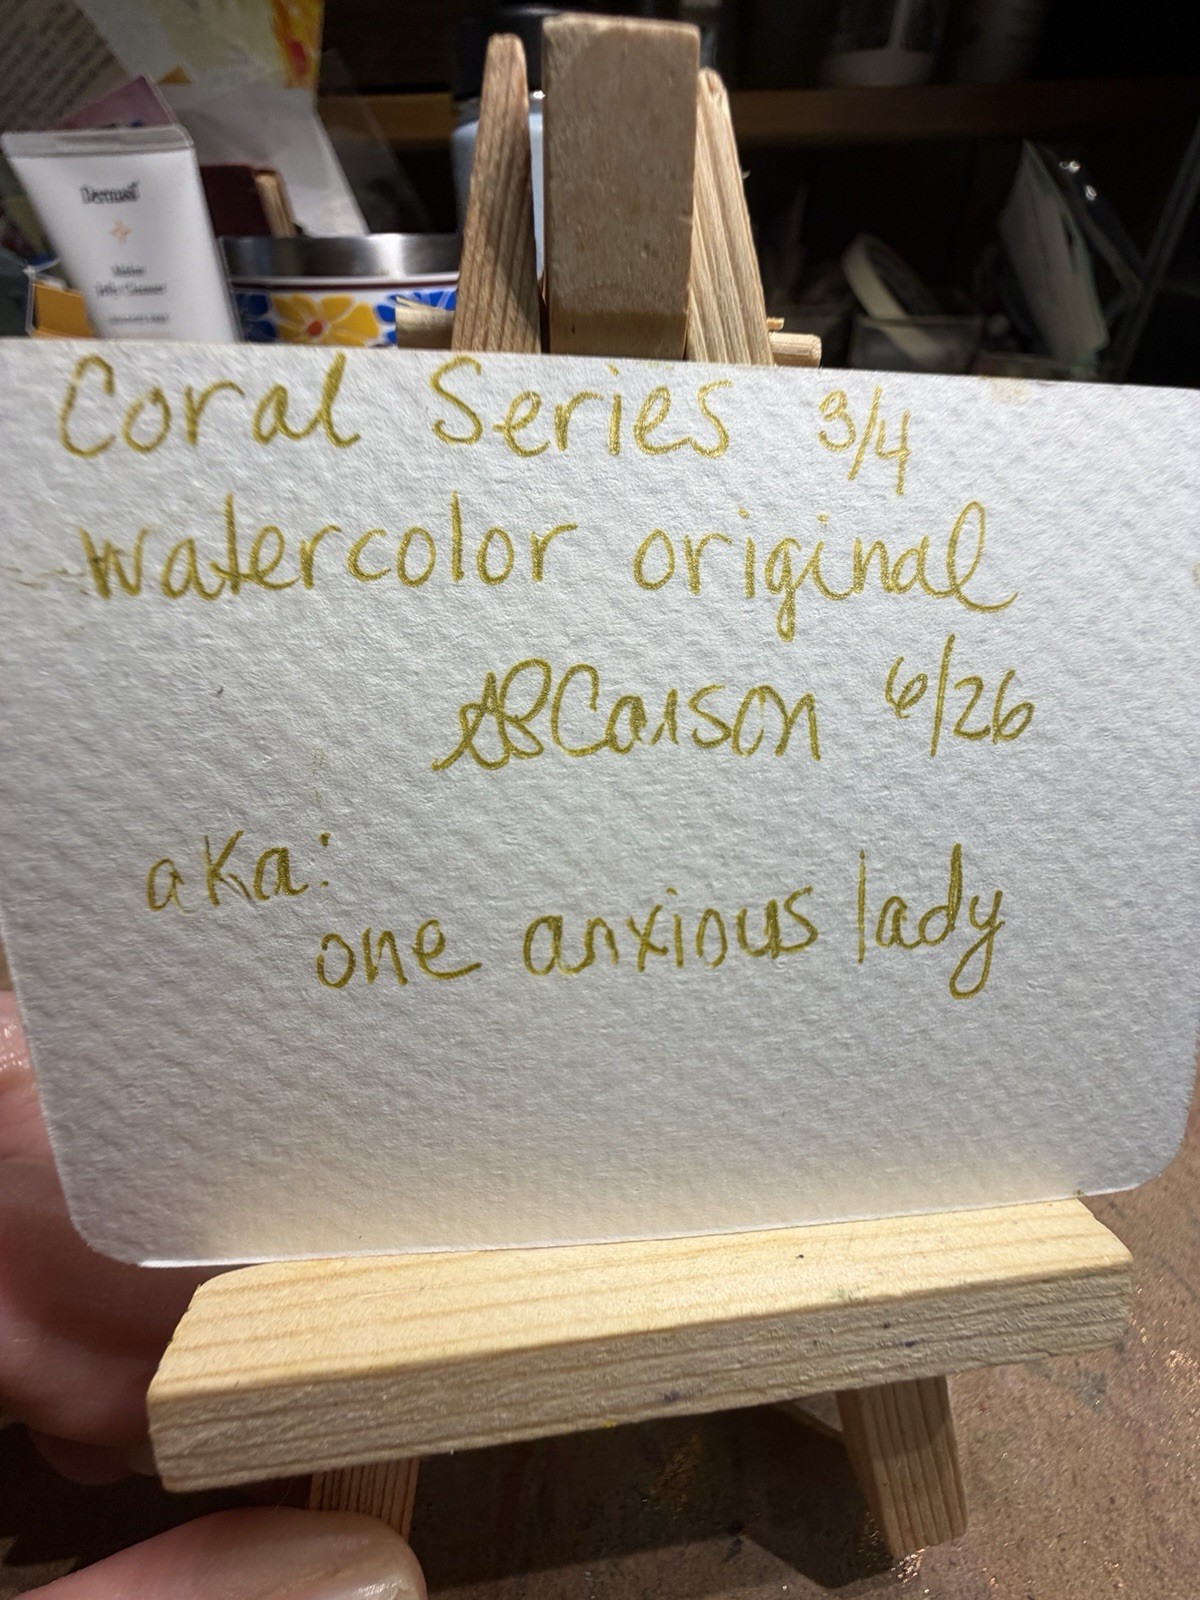 Coral Series 3/4
watercolor original
Carson 6/26
aka:
one anxious lady